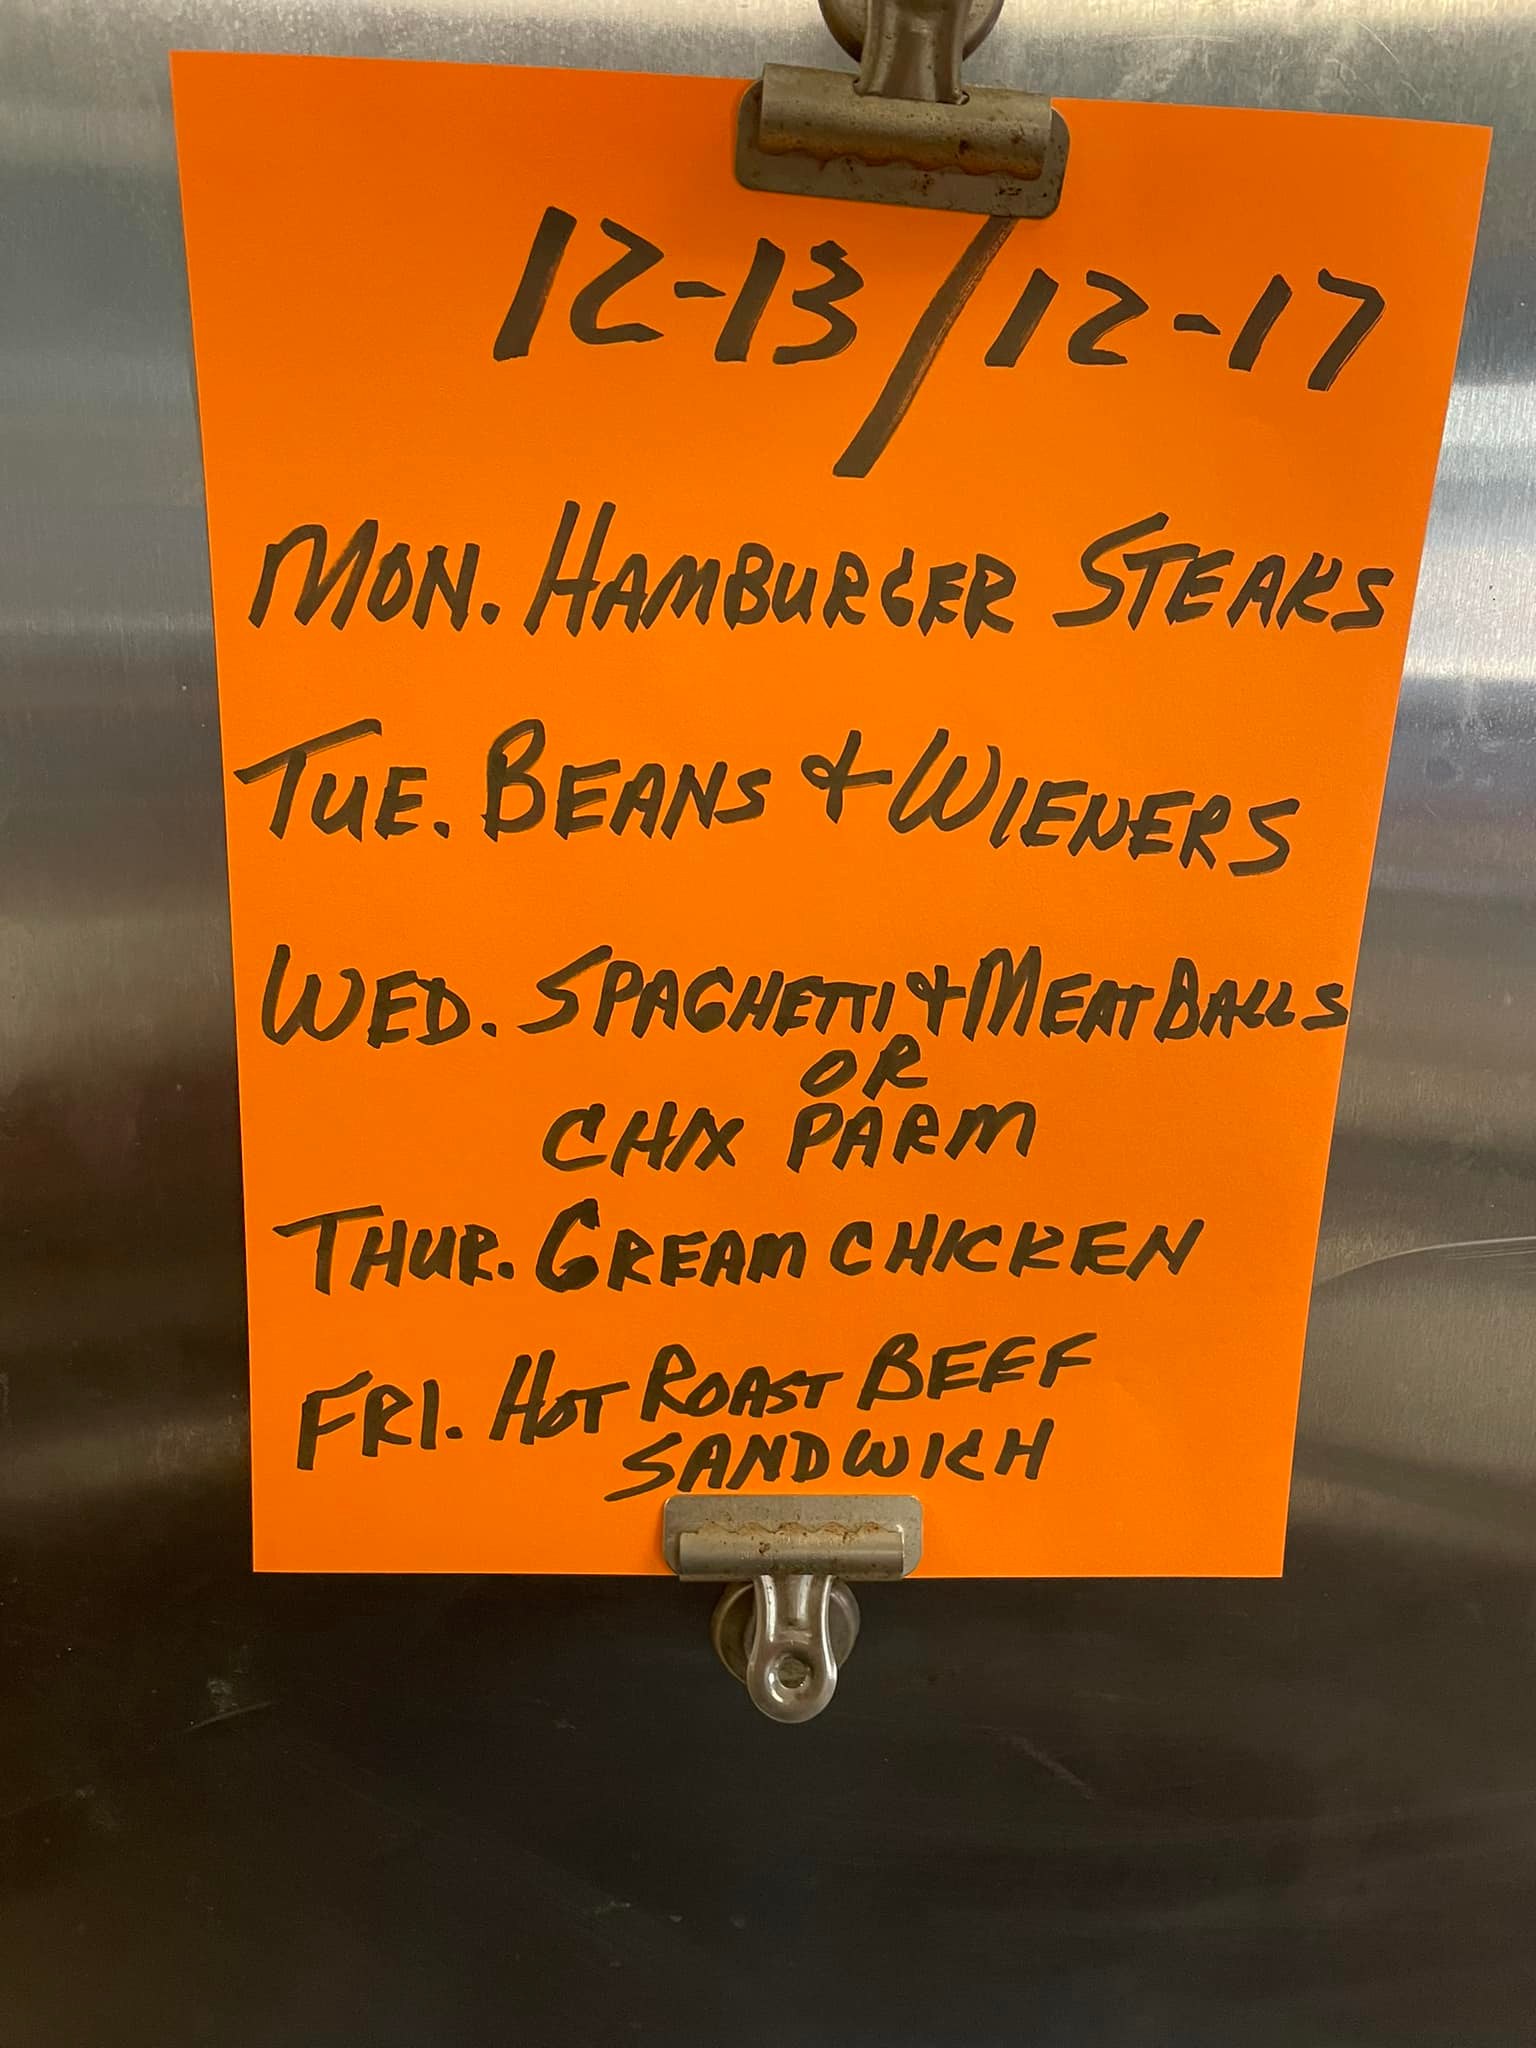 12-13/12-17
MON. HAMBURGER STEAKS
TUE. BEANS & WIENERS
WED. SPAGHETTI & MEATBALLS
OR
CHIX PARM
THUR. CREAM CHICKEN
FRI. HOT ROAST BEEF
SANDWICH